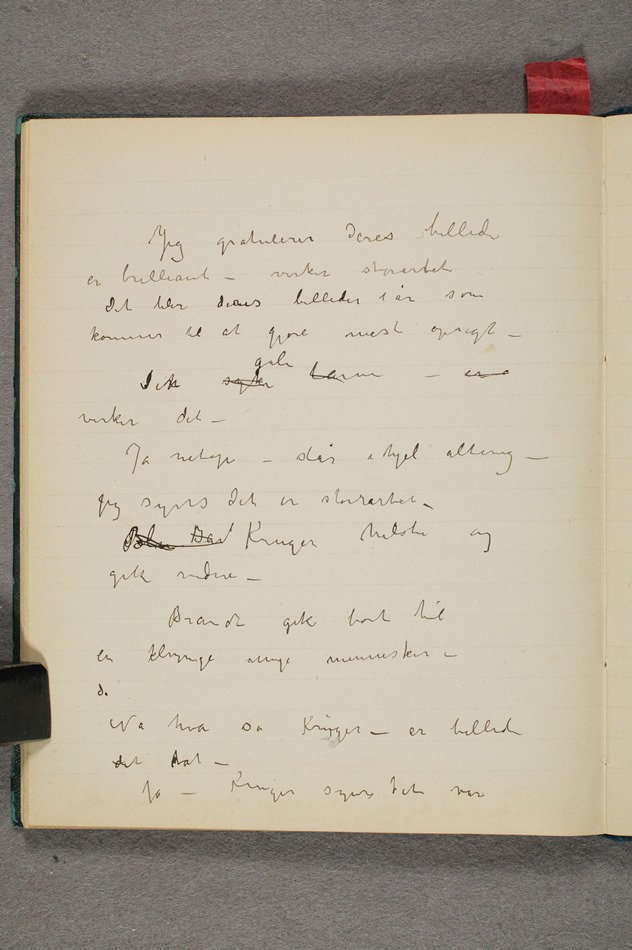 Jeg gratulerer Deres billede
er brilliant – virker storartet
Det blir deres billeder i år som
kommer til at gjøre mest opsigt –
Det syke gule barn – er
virker det –
Ja netop – slår ihjel alting –
jeg synes det er storartet –
Bahr Krüger hilste og
gik videre –
Brandt gik bort til
en klynge unge mennesker –
d.
Na hva sa Krüger – er billede
det
Ja – Krüger synes det var